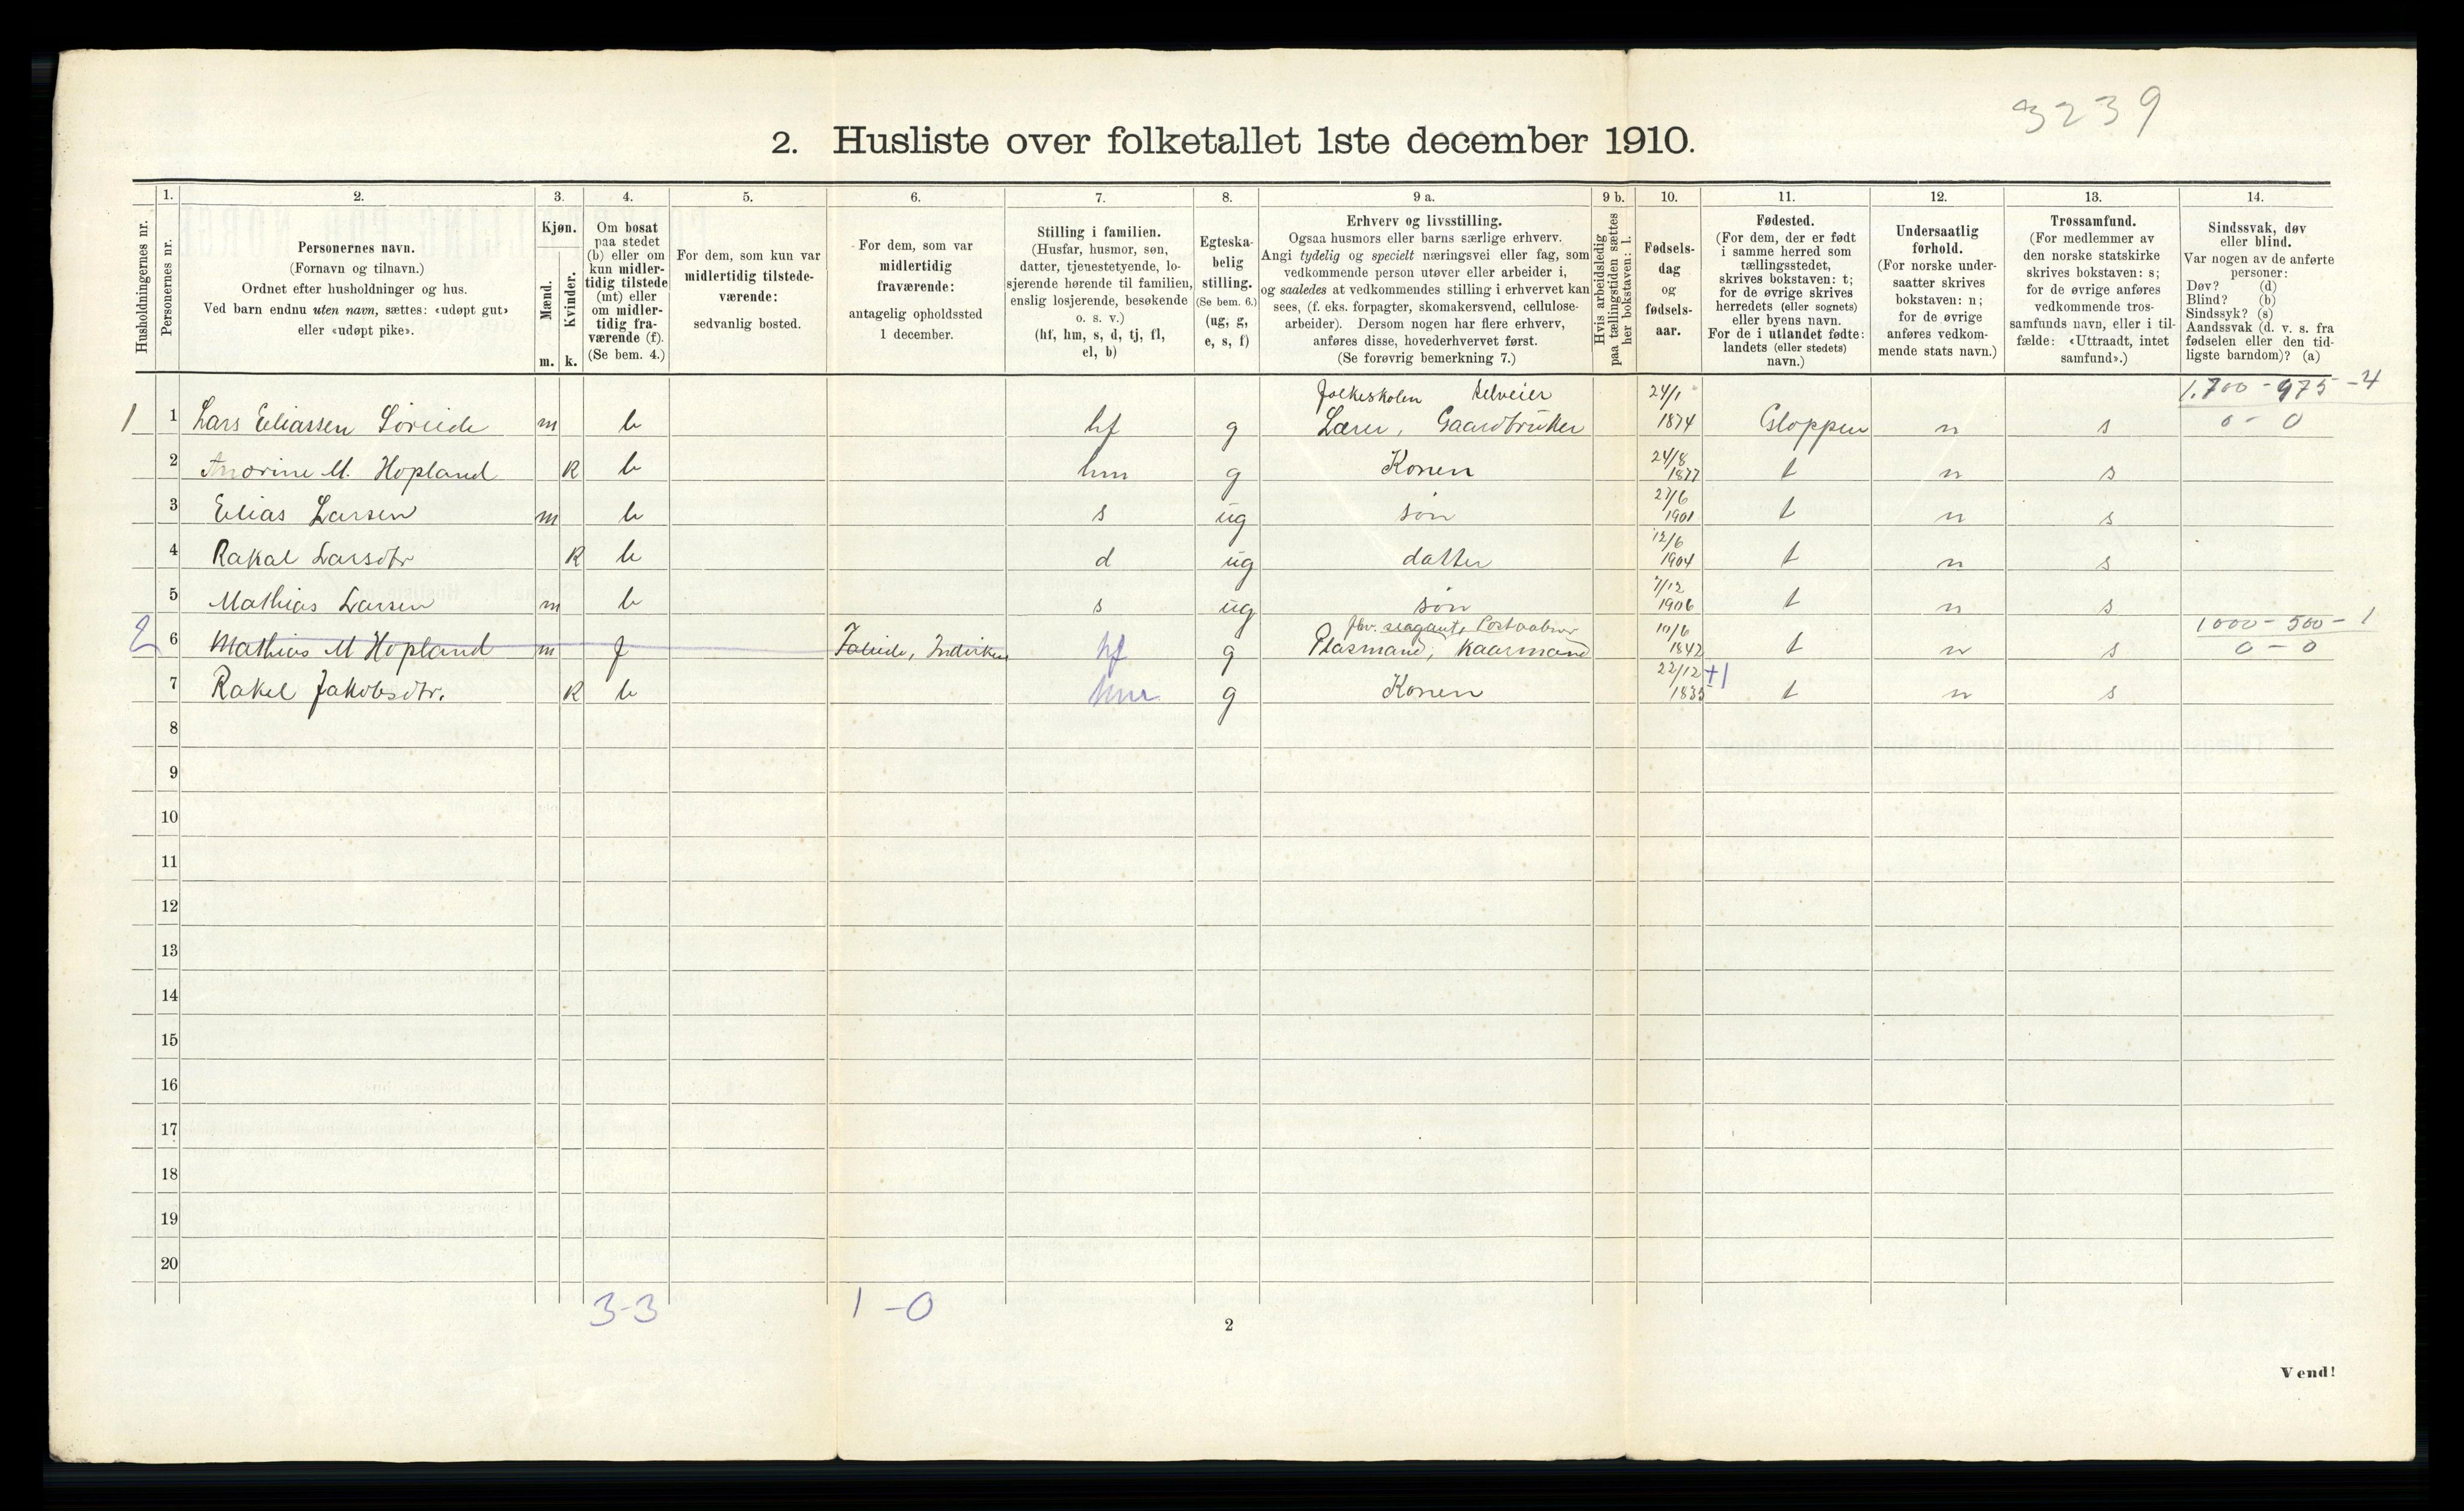 3239
2. Husliste over folketallet 1ste december 1910.
Husholdningernes nr.
1.
Personernes nr.
2.
Personernes navn.
(Fornavn og tilnavn.)
Ordnet efter husholdninger og hus.
Ved barn endnu uten navn, sættes: «udøpt gut»
eller «udøpt pike».
3.
Kjøn.
Mænd.
Kvinder.
m. k.
4.
Om bosat
paa stedet
(b) eller om
kun midler-
tidig tilstede
(mt) eller
om midler-
tidig fra-
værende (f).
(Se bem. 4.)
5.
For dem, som kun var
midlertidig tilstede-
værende:
sedvanlig bosted.
6.
For dem, som var
midlertidig
fraværende:
antagelig opholdssted
1 december.
7.
Stilling i familien.
(Husfar, husmor, søn,
datter, tjenestetyende, lo-
sjerende hørende til familien,
enslig losjerende, besøkende
o. s. v.)
(hf, hm, s, d, tj, fl,
el, b)
8.
Egteska-
belig
stilling.
(Se bem. 6.)
(ug, g,
e, s, f)
9 a.
Erhverv og livsstilling.
Ogsaa husmors eller barns særlige erhverv.
Angi tydelig og specielt næringsvei eller fag, som
vedkommende person utøver eller arbeider i,
og saaledes at vedkommendes stilling i erhvervet kan
sees, (f. eks. forpagter, skomakersvend, cellulose-
arbeider). Dersom nogen har flere erhverv,
anføres disse, hovederhvervet først.
(Se forøvrig bemerkning 7.)
9 b.
Hvis arbeidsledig
paa tællingstiden sættes
her bokstaven: l.
10.
Fødsels-
dag
og
fødsels-
aar.
11.
Fødested.
(For dem, der er født
i samme herred som
tællingsstedet,
skrives bokstaven: t;
for de øvrige skrives
herredets (eller sognets)
eller byens navn.
For de i utlandet fødte:
landets (eller stedets)
navn.)
12.
Undersaatlig
forhold.
(For norske under-
saatter skrives
bokstaven: n;
for de øvrige
anføres vedkom-
mende stats navn.)
13.
Trossamfund.
(For medlemmer av
den norske statskirke
skrives bokstaven: s;
for de øvrige anføres
vedkommende tros-
samfunds navn, eller i til-
fælde: «Uttraadt, intet
samfund».)
14.
Sindssvak, døv
eller blind.
Var nogen av de anførte
personer:
Døv? (d)
Blind? (b)
Sindssyk? (s)
Aandssvak (d. v. s. fra
fødselen eller den tid-
ligste barndom)? (a)
folkeskolen selveier 24/1 1.700 - 975 - 4
1 1 Lars Eliassen Söreide m b hf g Lærer, Gaardbruker 1874 Gloppen n s 0 - 0
2 Anorine M. Hopland k b hm g Konen 24/8 1877 t n s
3 Elias Larsen m b s ug søn 27/6 1901 t n s
4 Rakal Larsdtr k b d ug datter 12/6 1904 t n s
5 Mathias Larsen m b s ug søn 7/12 1906 t n s
fhv. Postaabner 10/6 1000 - 500 - 1
2 6 Mathias M Hopland m f hf g Kaarmand 1842 t n s 0 - 0
7 Rakel Jakobsdtr. k b hm g Konen 22/12 1835 +1 t n s
8
9
10
11
12
13
14
15
16
17
18
19
20
3-3 1-0
2
Vend!